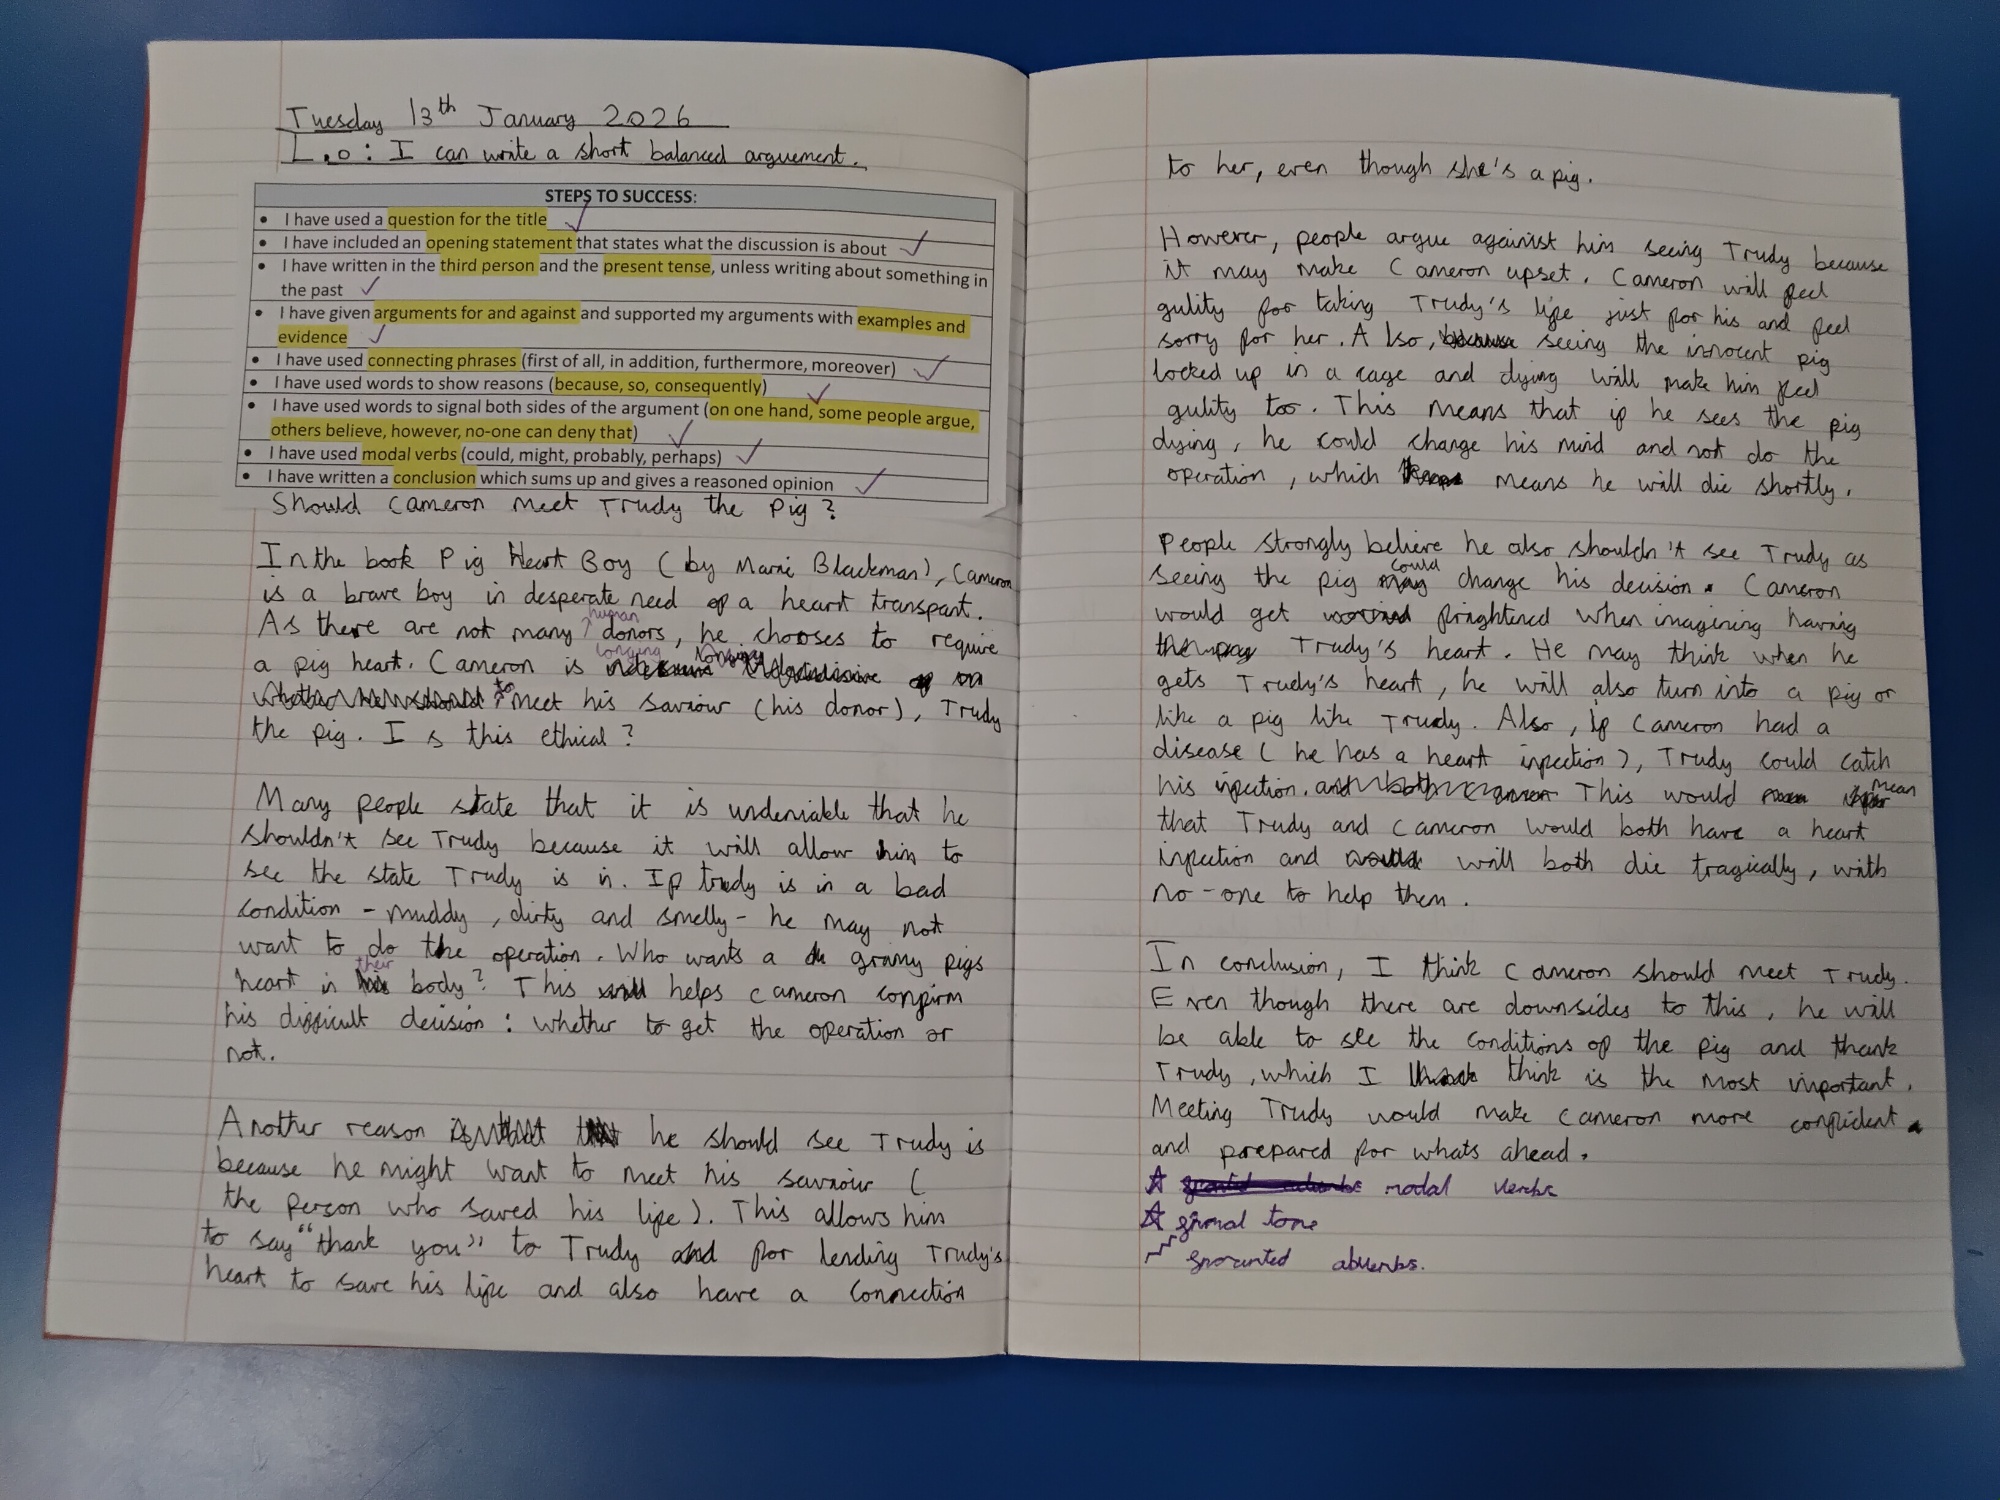 Tuesday 13th January 2026
L.o: I can write a short balanced arguement.
STEPS TO SUCCESS:
• I have used a question for the title
• I have included an opening statement that states what the discussion is about
• I have written in the third person and the present tense, unless writing about something in
the past
• I have given arguments for and against and supported my arguments with examples and
evidence
• I have used connecting phrases (first of all, in addition, furthermore, moreover)
• I have used words to show reasons (because, so, consequently)
• I have used words to signal both sides of the argument (on one hand, some people argue,
others believe, however, no-one can deny that)
• I have used modal verbs (could, might, probably, perhaps)
• I have written a conclusion which sums up and gives a reasoned opinion
Should Cameron meet Trudy the pig?
In the book Pig Heart Boy (by Blackman), Cameron
is a brave boy in desperate need of a heart transpant.
human
As there are not many donors, he chooses to require
longing
a pig heart. Cameron is
to meet his saviour (his donor), Trudy
the pig. Is this ethical?
Many people state that it is undeniable that he
shouldn't see Trudy because it will allow him to
see the state Trudy is in. If trudy is in a bad
condition - muddy, dirty and smelly - he may not
want to do the operation. Who wants a gramy pigs
their
heart in body? This helps Cameron confirm
his difficult decision: whether to get the operation or
not.
Another reason he should see Trudy is
because he might want to meet his saviour (
the person who saved his life). This allows him
to say "thank you" to Trudy for lending Trudy's
heart to save his life and also have a connection
to her, even though she's a pig.
However, people argue againist him seeing Trudy because
it may make Cameron upset. Cameron will feel
gulity for taking Trudy's life just for his and feel
sorry for her. Also, seeing the innocent pig
locked up in a cage and dying will make him feel
gulity too. This means that if he sees the pig
dying, he could change his mind and not do the
operation, which means he will die shortly.
People strongly believe he also shouldn't see Trudy as
could
seeing the pig may change his decision. Cameron
would get frightened when imagining having
Trudy's heart. He may think when he
gets Trudy's heart, he will also turn into a pig or
like a pig like Trudy. Also, if Cameron had a
disease (he has a heart infection), Trudy could catch
mean
his infection. This would
that Trudy and Cameron would both have a heart
infection and will both die tragically, with
no-one to help them.
In conclusion, I think Cameron should meet Trudy.
Even though there are downsides to this, he will
be able to see the conditions of the pig and thank
Trudy, which I think is the most important.
Meeting Trudy would make Cameron more confident
and prepared for whats ahead.
modal verbs
tone